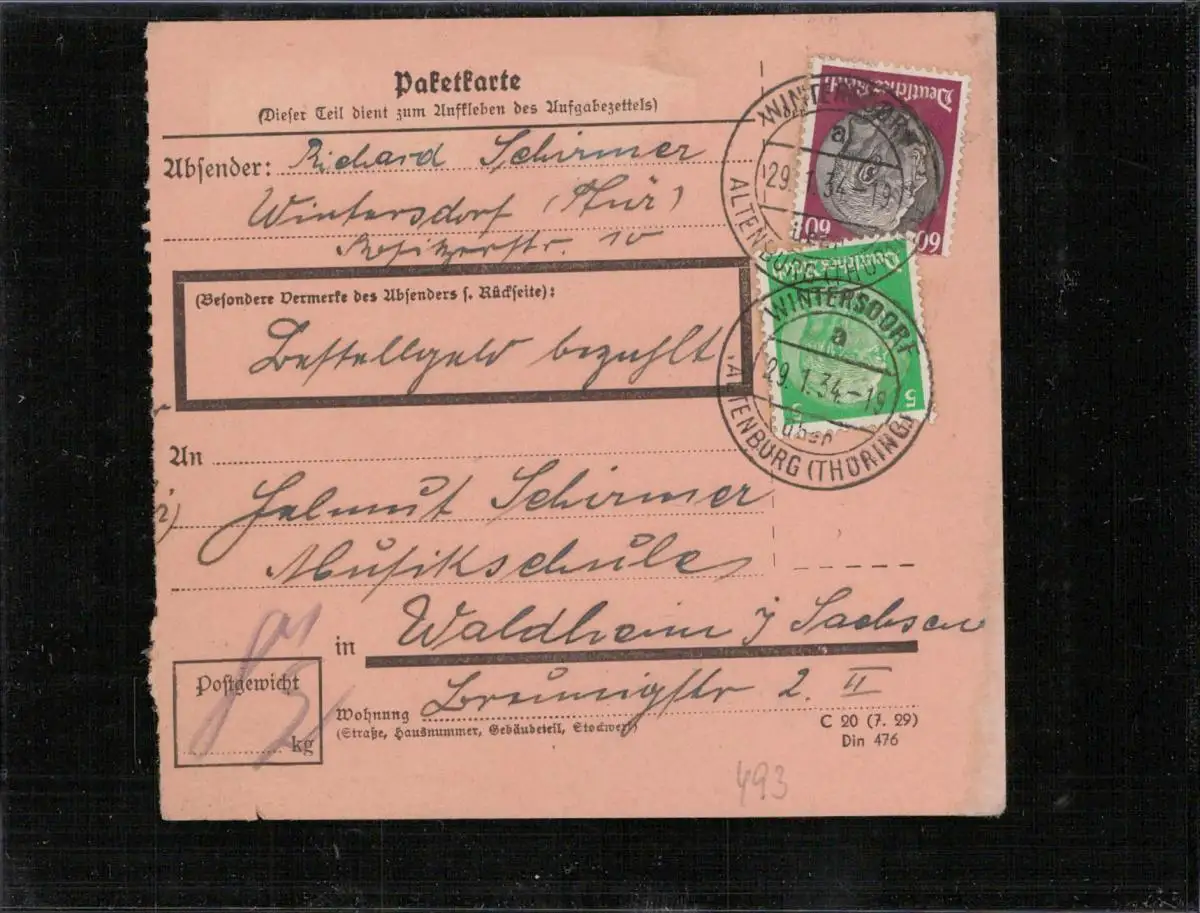 Paketkarte
(Dieser Teil dient zum Aufkleben des Aufgabezettels)
Absender: Richard Schirmer
Wintersdorf (Thür)
Rositzerstr. 10
(Besondere Vermerke des Absenders s. Rückseite):
Bestellgeld bezahlt
An
Helmut Schirmer
Musikschule
in Waldheim i/ Sachsen
Breunigstr 2. II
Wohnung
(Straße, Hausnummer, Gebäudeteil, Stockwerk)
Postgewicht
kg
C 20 (7. 29)
Din 476
493
Deutsches Reich
60 60
WINTERSDORF
a
29.1.34.-19
über
ALTENBURG (THÜRING)
Deutsches Reich
5 5
WINTERSDORF
a
29.1.34.-19
über
ALTENBURG (THÜRING)